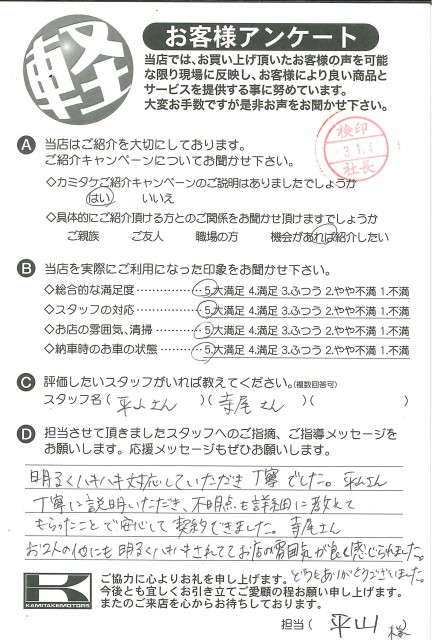 軽
お客様アンケート
当店では、お買い上げ頂いたお客様の声を可能
な限り現場に反映し、お客様により良い商品と
サービスを提供する事に努めています。
大変お手数ですが是非お声をお聞かせ下さい。
検印
3.1.4
社長
A 当店はご紹介を大切にしております。
ご紹介キャンペーンについてお聞かせ下さい。
◇カミタケご紹介キャンペーンのご説明はありましたでしょうか
はい いいえ
◇具体的にご紹介頂ける方とのご関係をお聞かせ頂けますでしょうか
ご親族 ご友人 職場の方 機会があれば紹介したい
B 当店を実際にご利用になった印象をお聞かせ下さい。
◇総合的な満足度……………5.大満足 4.満足 3.ふつう 2.やや不満 1.不満
◇スタッフの対応……………5.大満足 4.満足 3.ふつう 2.やや不満 1.不満
◇お店の雰囲気、清掃………5.大満足 4.満足 3.ふつう 2.やや不満 1.不満
◇納車時のお車の状態………5.大満足 4.満足 3.ふつう 2.やや不満 1.不満
C 評価したいスタッフがいれば教えてください。(複数回答可)
スタッフ名( 平山さん )( 寺尾さん )( )
D 担当させて頂きましたスタッフへのご指摘、ご指導メッセージを
お願いします。応援メッセージもぜひお願いします。
明るくハキハキ対応していただき丁寧でした。平山さん
丁寧に説明いただき、不明点も詳細に教えて
もらったことで安心して契約できました。寺尾さん
お2人の他にも明るくハキハキされててお店の雰囲気が良く感じられました。
どうもありがとうございました。
KAMITAKE MOTORS
ご協力に心よりお礼を申し上げます。
今後とも宜しくお引き立てご愛顧の程お願い申し上げます。
またのご来店を心からお待ちしております。
担当( 平山 様